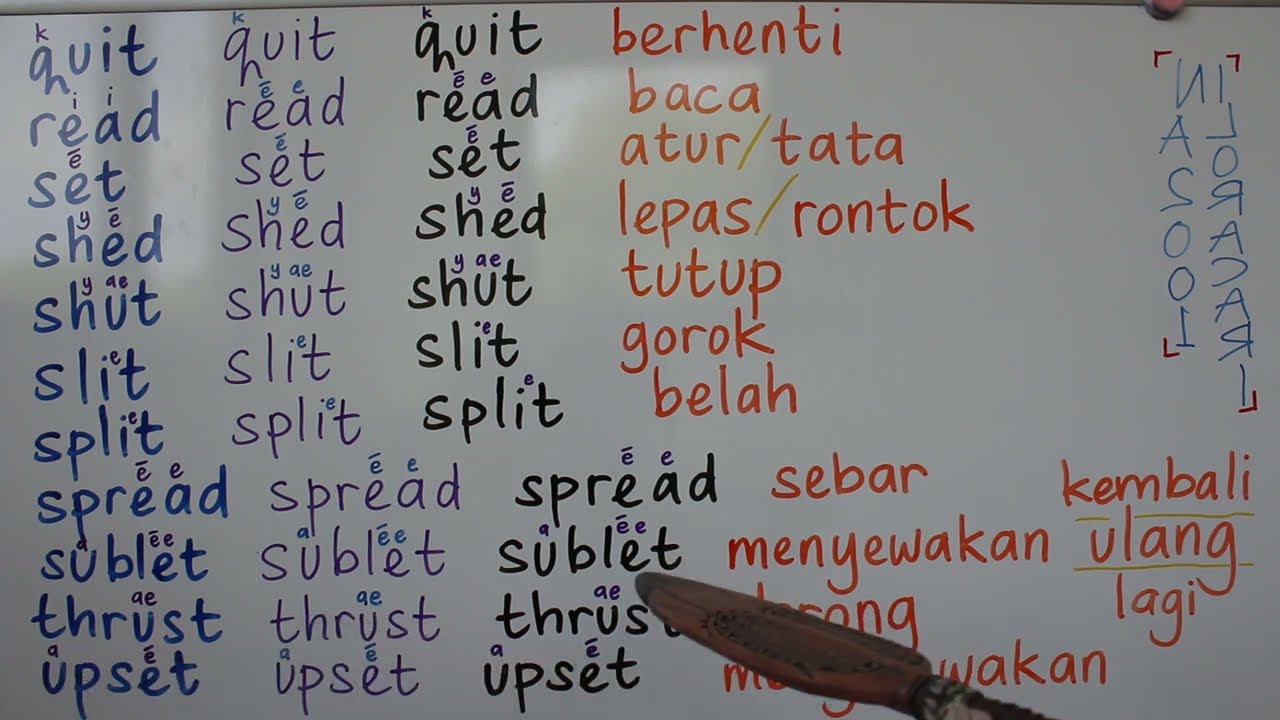 k k k
quit quit quit berhenti
i i ē e ē e
read read read baca
ē ē ē
set set set atur/tata
y ē y ē y ē
shed shed shed lepas/rontok
y ae y ae y ae
shut shut shut tutup
e e e
slit slit slit gorok
e e e
split split split belah
ē e ē e ē e
spread spread spread sebar kembali
a ēe a ēe a ēe
sublet sublet sublet menyewakan ulang
ae ae ae
thrust thrust lagi
a ē a ē a ē
upset upset upset